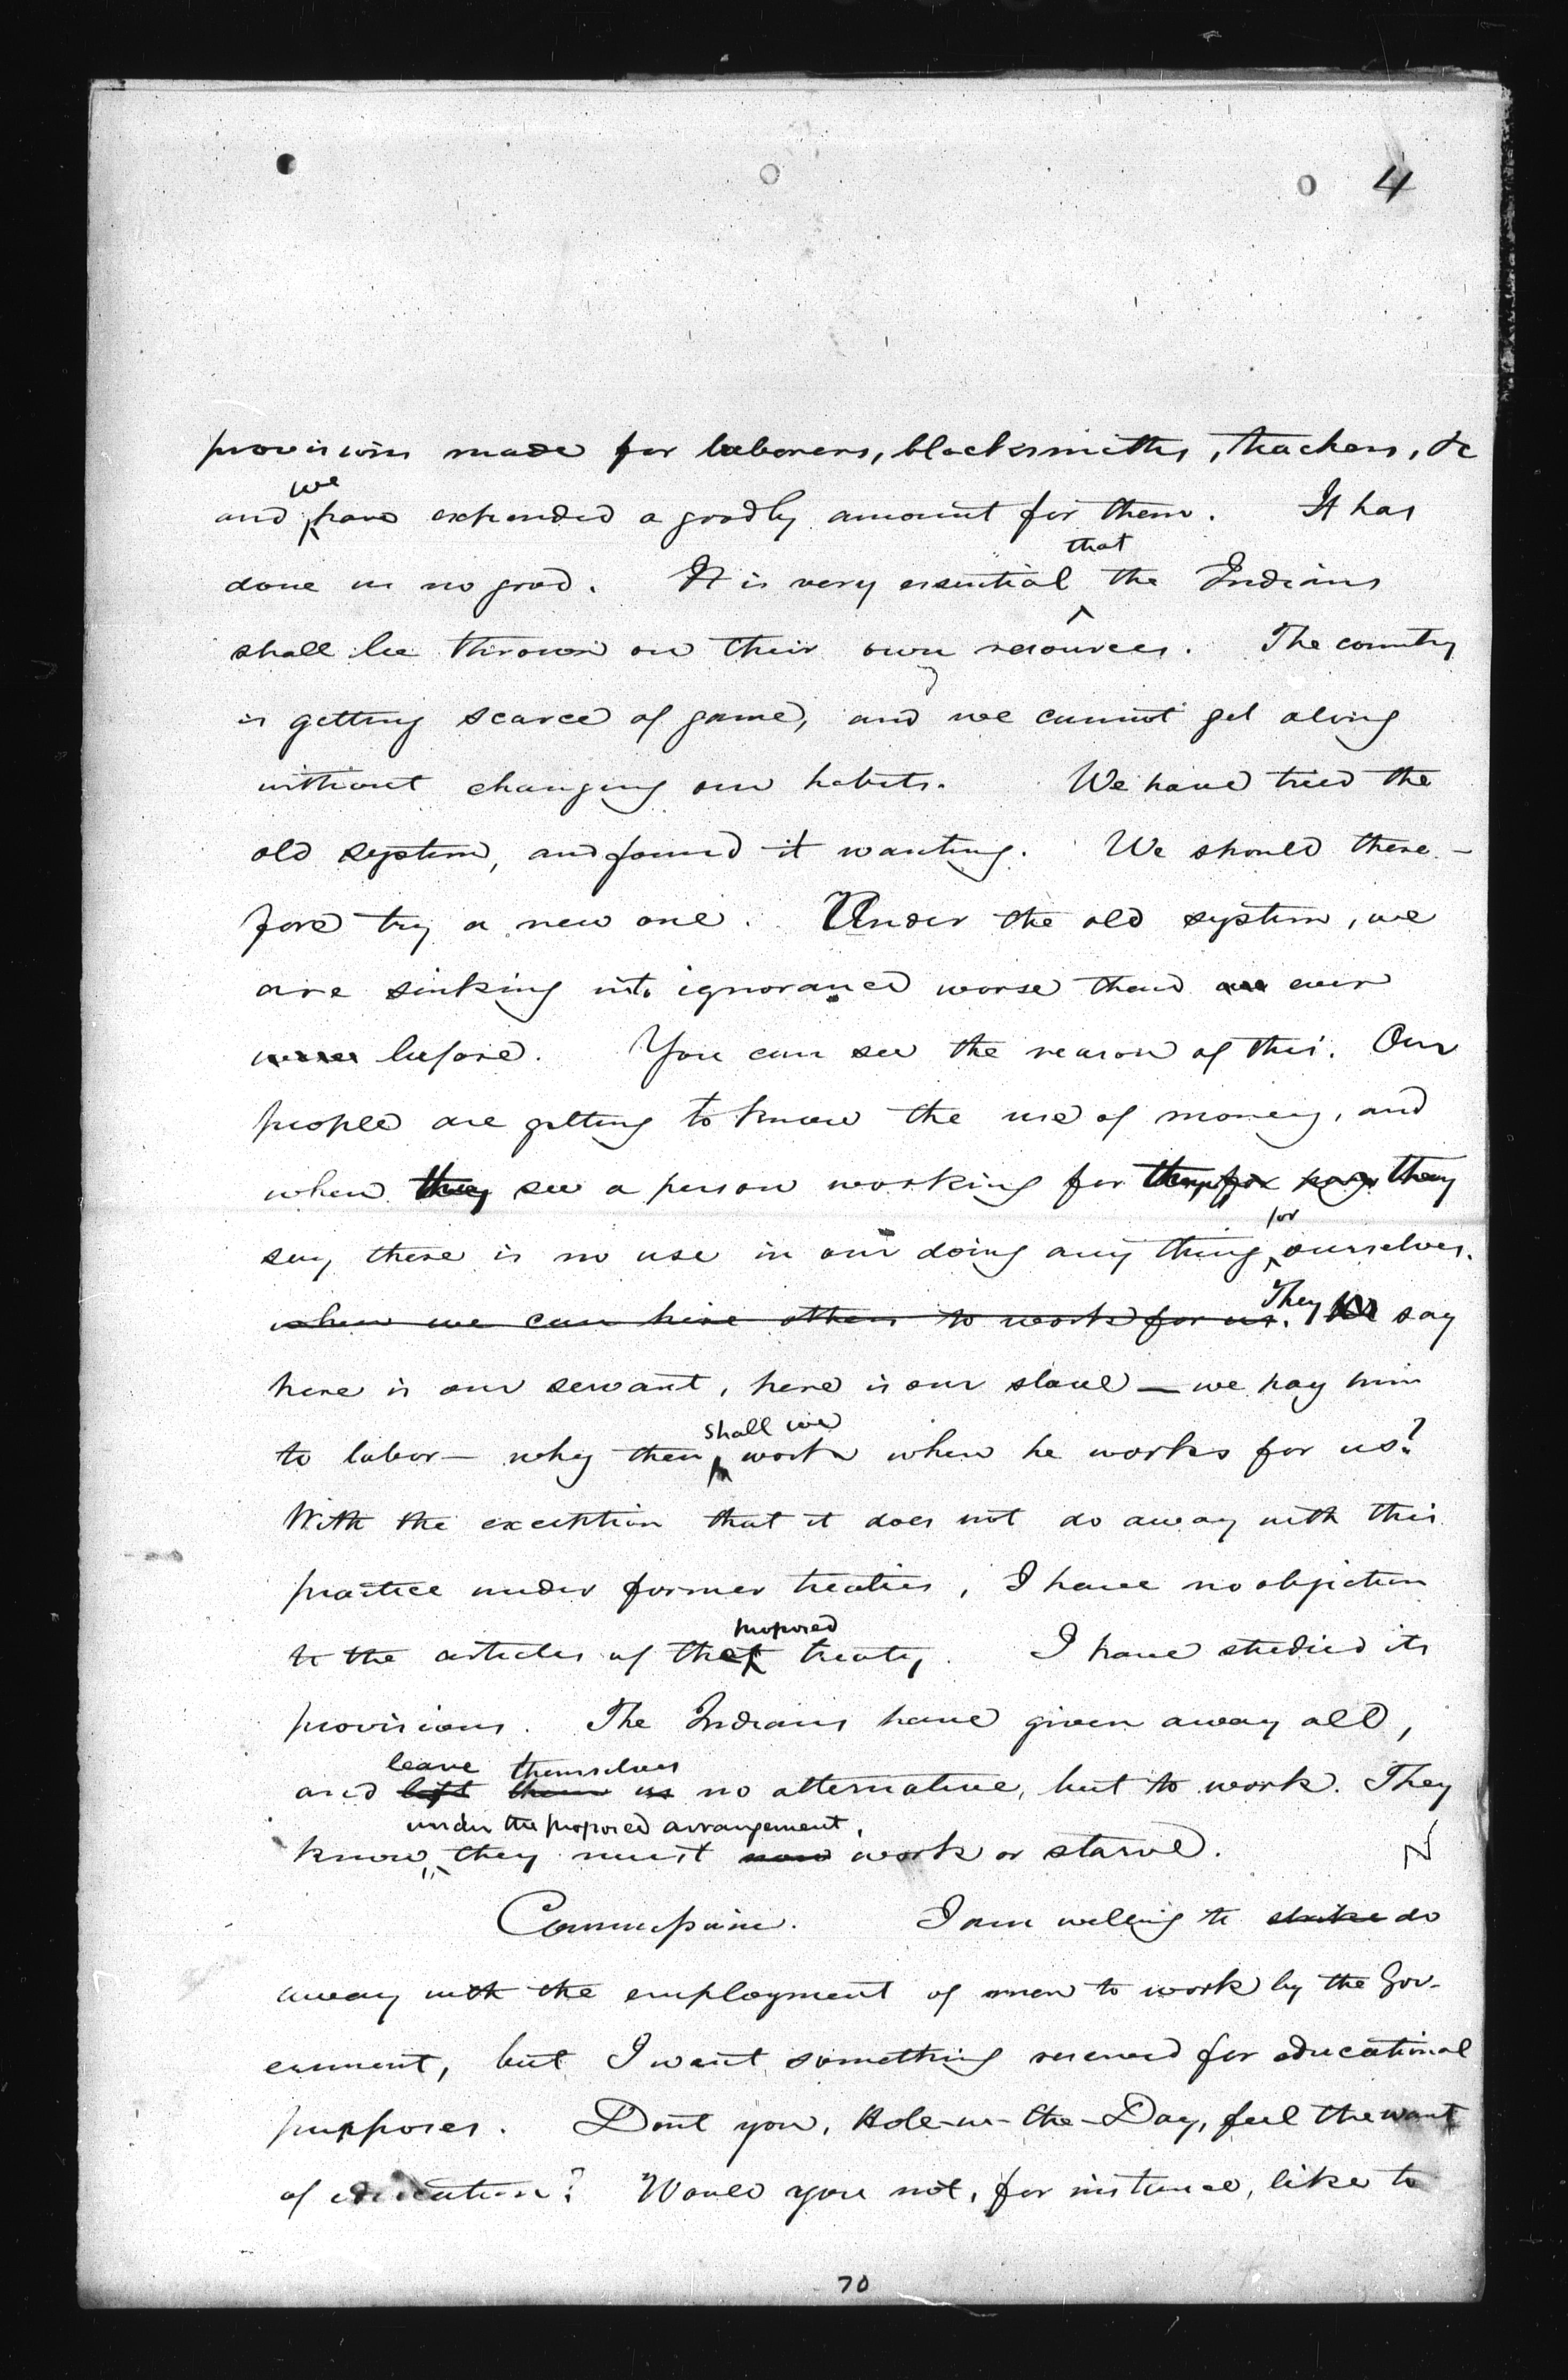 4
provisions made for laborers, blacksmiths, teachers, &c
and we have expended a goodly amount for them. It has
done us no good. It is very essential that the Indians
shall be thrown on their own resources. The country
is getting scarce of game, and we cannot get along
without changing our habits. We have tried the
old system, and found it wanting. We should there-
fore try a new one. Under the old system, we
are sinking into ignorance worse than ever
before. You can see the reason of this. Our
people are getting to know the use of money, and
when they see a person working for they
say there is no use in our doing any thing for ourselves.
when we can hire others to work for us. They We say
here is our servant, here is our slave — we pay him
to labor — why then shall we work when he works for us?
With the exception that it does not do away with this
practice under former treaties, I have no objection
to the articles of the proposed treaty. I have studied its
provisions. The Indians have given away all,
leave themselves
and left them us no alternative, but to work. They
under the proposed arrangement,
know they must now work or starve.
Commissioner. I am willing to strike do
away with the employment of men to work by the Gov-
ernment, but I want something reserved for educational
purposes. Dont you, Hole-in-the-Day, feel the want
of education? Would you not, for instance, like to
70